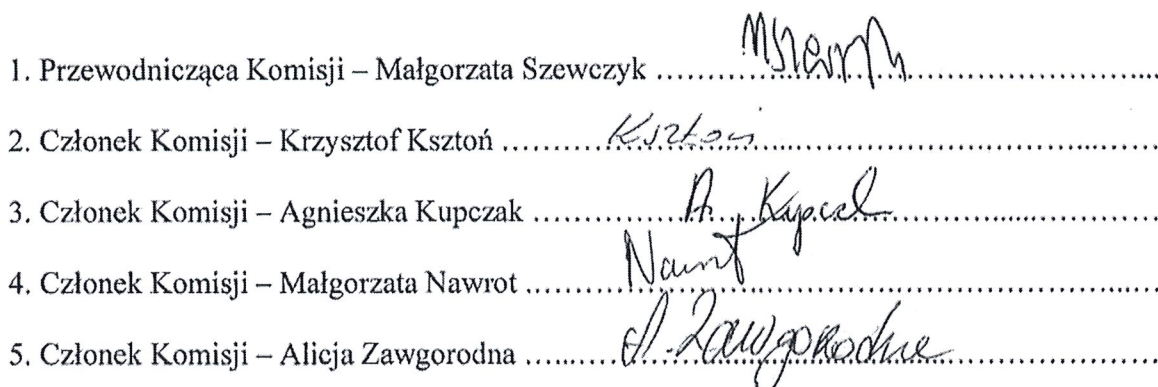 1. Przewodnicząca Komisji – Małgorzata Szewczyk ...............................................
2. Członek Komisji – Krzysztof Ksztoń ............Ksztoń...............................................
3. Członek Komisji – Agnieszka Kupczak ..................A. Kupczak...............................
4. Członek Komisji – Małgorzata Nawrot ............Nawrot...........................................
5. Członek Komisji – Alicja Zawgorodna ..........A. Zawgorodna...............................